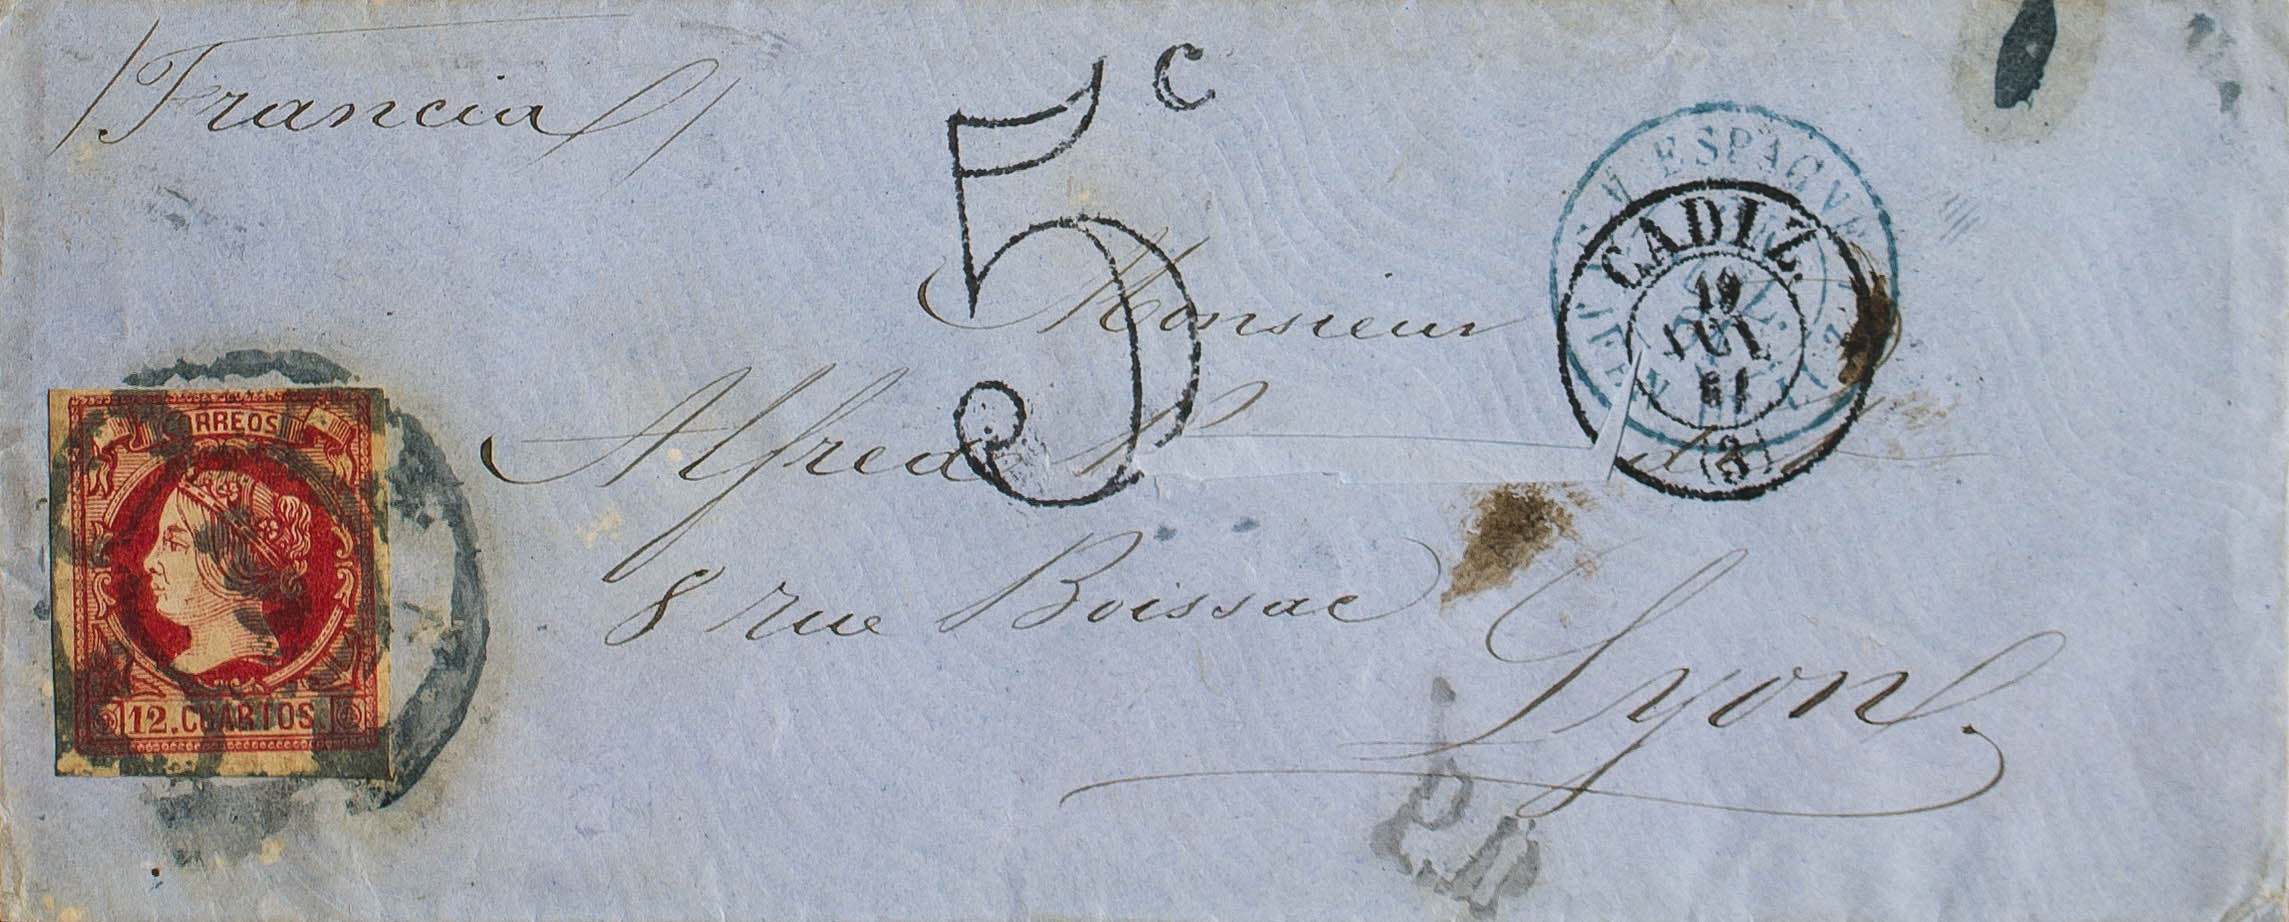 Francia
5 c
ESPAGNE
CADIZ.
19
JUL
61
(3)
Monsieur
Alfred
8 rue Boissac
Lyon
CORREOS
12.CUARTOS.
P.D